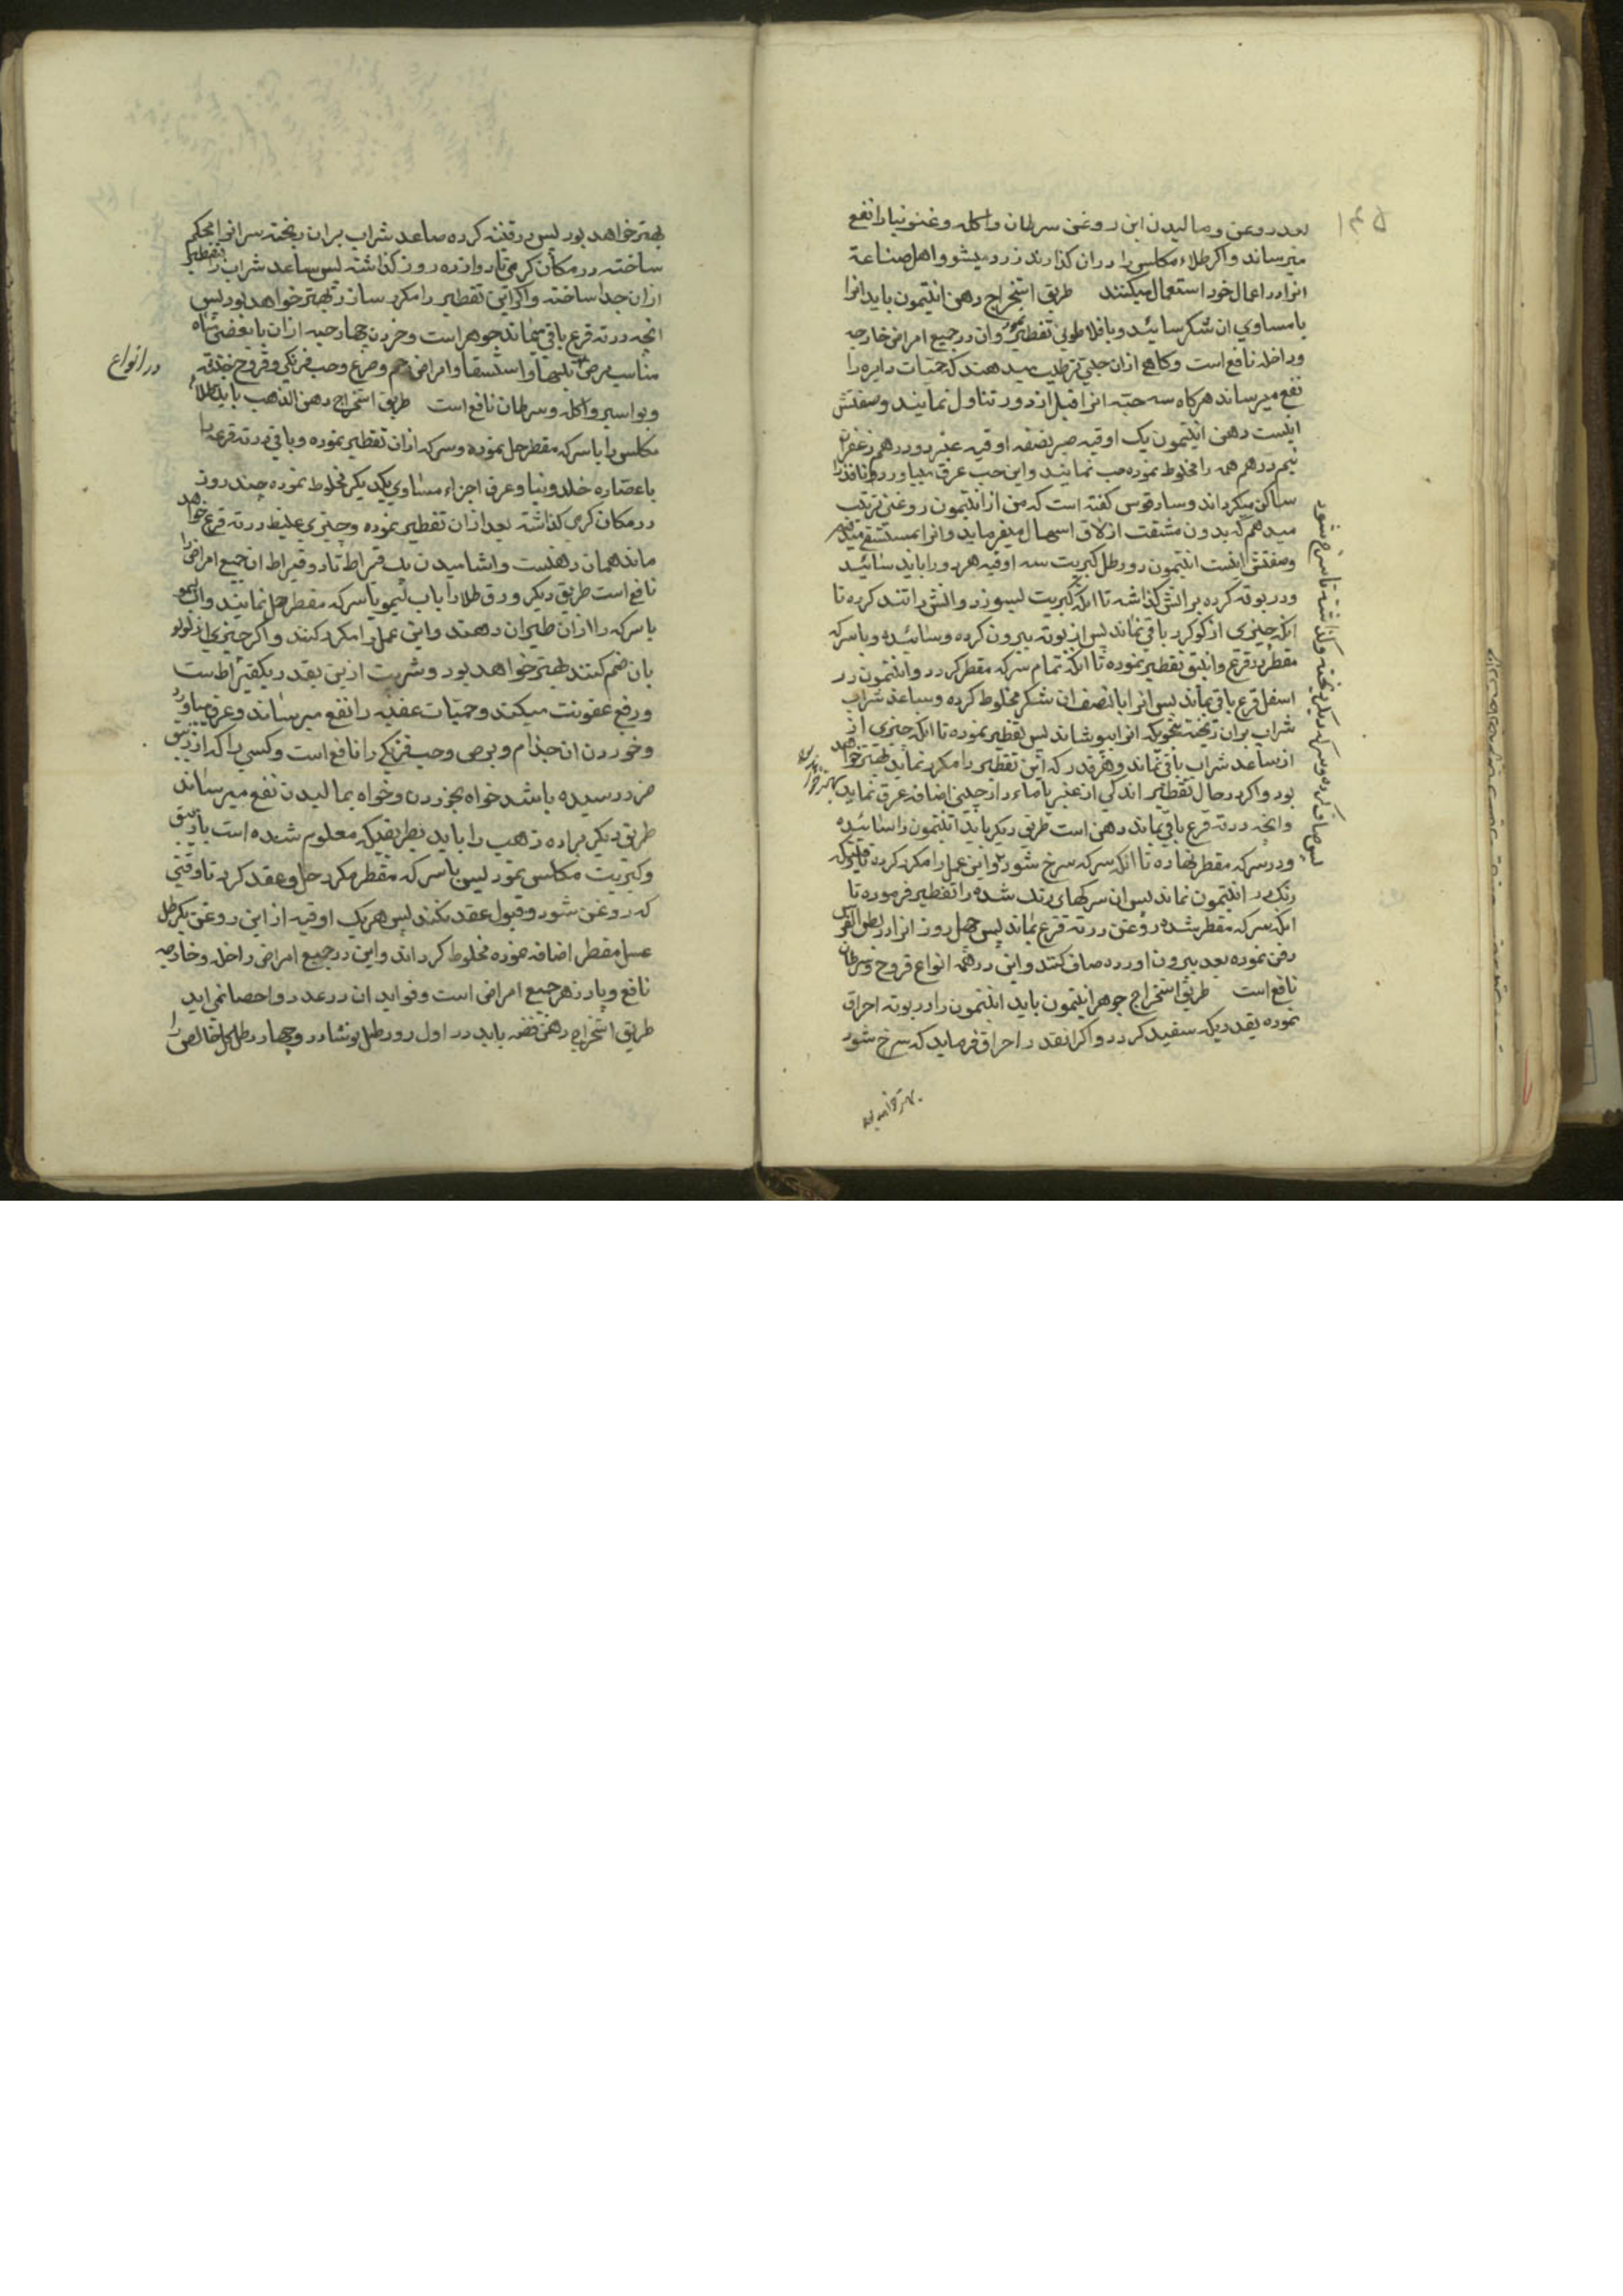 ۱۴۵
بعد روغن و مالیدن این روغن سرطان واکله وغنغرنیا را نفع
میرساند واکر طلاء مکلس را دران کذارند زرد میشود واهل صناعة
انرا در اعمال خود استعمال میکنند طریق استخراج دهن انتیمون باید انرا
با مساوی ان شکر سائید و با فلاطونی تقطیر نمود وان در جمیع امراض خارجه
و داخله نافع است وکاهی ازان حبی ترتیب میدهند که حمیات دایره را
نفع میرساند هرکاه سه حبه انرا قبل از دور تناول نمایند وصفتش
اینست دهن انتیمون یک اوقیه صبر نصف اوقیه عنبر دو درهم زعفران
نیم درهم همه را مخلوط نموده حب نمایند واین حب عرق میاورد
ساکن میکرداند وسارقوس کفته است که من از انتیمون روغنی ترتیب
میدهم که بدون مشقت ازلاق اسهال میفرماید وانرا بمستسقی میدهم
وصفتش اینست انتیمون دو رطل کبریت سه اوقیه هر دو را باید سائید
ودر بوته کرده براتش کذاشته تا انکه کبریت بسوزد واتش را تند کرده تا
انکه چیزی از کوکرد باقی نماند پس از بوته بیرون کرده وسائیده وبا سرکه
مقطر در قرع وانبیق تقطیر نموده تا انکه تمام سرکه مقطر کردد وانتیمون در
اسفل قرع باقی بماند پس انرا با نصف ان شکر مخلوط کرده وساعد شراب
شراب بران ریخته بنحویکه انرا بپوشاند پس تقطیر نموده تا انکه چیزی از
از ساعد شراب باقی نماند وهر قدر که این تقطیر را مکرر نماید بهتر خواهد
بود واکر در حال تقطیر اندکی از عنبر یا ماء دارچینی اضافه عرق نماید بهتر خواهد بود
وانچه در ته قرع باقی بماند دهن است طریق دیکر باید انتیمون را سائیده
ودر سرکه مقطر نهاده تا انکه سرکه سرخ شود واین عمل را مکرر کرده تا وقتیکه
رنک در انتیمون نماند پس ان سرکهای رنک شده را تقطیر فرموده تا
انکه سرکه مقطر شده روغن در ته قرع بماند پس چهل روز انرا در بطن الفرس
دفن نموده بعد بیرون اورده صاف کنند واین در همه انواع قروح وسرطان
نافع است طریق استخراج جوهر انتیمون باید انتیمون را در بوته احراق
نموده بقدریکه سفید کردد واکر انقدر احراق فرماید که سرخ شود
بهتر خواهد بود
پس صاف کرده وسرکه دیکر ریخته وکذاشته تا سرخ شود
بهتر خواهد بود پس در قنینه کرده صاعد شراب بران ریخته سر انرا محکم
ساخته در مکان کرمی تا دوازده روز کذاشته پس ساعد شراب را بتقطیر
ازان جدا ساخته واکر این تقطیر را مکرر سازد بهتر خواهد بود پس
انچه در ته قرع باقی میماند جوهر است وخوردن چهار حبه ازان با بعضی میاه
مناسب مرض تبها واستسقا وامراض رحم وصرع وحب فرنکی وقروح خبیثه
وبواسیر واکله وسرطان نافع است طریق استخراج دهن الذهب باید طلاء
مکلس را با سرکه مقطر حل نموده وسرکه ازان تقطیر نموده وباقی در ته قرعه را
با عصاره خلدونیا وعرق اجزاء مساوی یکدیکر مخلوط نموده چند روز
در مکان کرمی کذاشته بعد ازان تقطیر نموده وچیزی غلیظ در ته قرع خواهد
ماند همان دهنست واشامیدن یک قیراط تا دو قیراط ان جمیع امراض را
نافع است طریق دیکر ورق طلا را باب لیمو یا سرکه مقطر حل نمایند واب لیمو
یا سرکه را ازان طیران دهند واین عمل را مکرر کنند واکر چیزی از لولو
بان ضم کنند بهتر خواهد بود وشربت ازین بقدر یکقیراط است
ورفع عفونت میکند وحمیات عفنه را نفع میرساند وعرق میاورد
وخوردن ان جذام وبرص وحب فرنکی را نافع است وکسی را که از زیبق
ضرر رسیده باشد خواه بخوردن وخواه بمالیدن نفع میرساند
طریق دیکر براده ذهب را باید بطریقیکه معلوم شده است با زیبق
وکبریت مکلس نمود پس با سرکه مقطر مکرر حل وعقد کرد تا وقتی
که روغن شود وقبول عقد نکند پس هر یک اوقیه از این روغن یکرطل
عسل مقطر اضافه نموده مخلوط کرداند واین در جمیع امراض داخله وخارجه
نافع وپادزهر جمیع امراض است وفواید ان در عدد واحصا نمی اید
طریق استخراج دهن فضه باید در اول دو رطل نوشادر وچهار رطل خل خالص را
در انواع